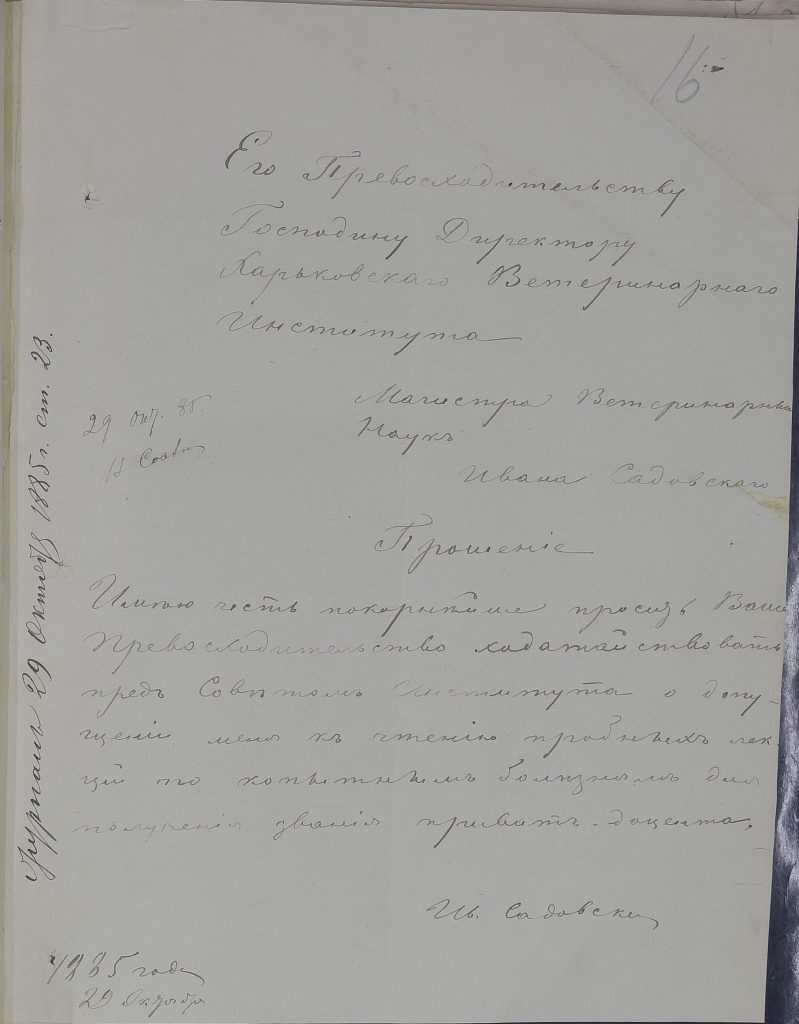 16
Его Превосходительству
Господину Директору
Харьковскаго Ветеринарнаго
Института
Магистра Ветеринарных
Наукъ
Ивана Садовскаго
Прошеніе
29 Окт. 85.
Имѣю честь покорнѣйше просить Ваше
Превосходительство ходатайствовать
предъ Совѣтомъ Института о допу-
щеніи меня къ чтенію пробныхъ лек-
цій по копытнымъ болѣзнямъ для
полученія званія приватъ-доцента.
Ив. Садовскій
1885 года
29 Октября
Журналъ 29 Октября 1885 г. ст. 23.